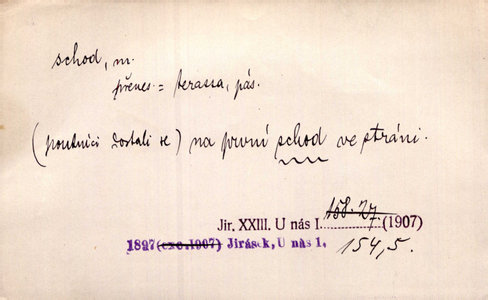 schod, m.
přenes. = terassa, pás.
(poutníci dostali se) na první schod ve stráni.
158.27.
Jir. XXIII. U nás I. (1907)
1897 (exc. 1907) Jirásek, U nás 1. 154,5.